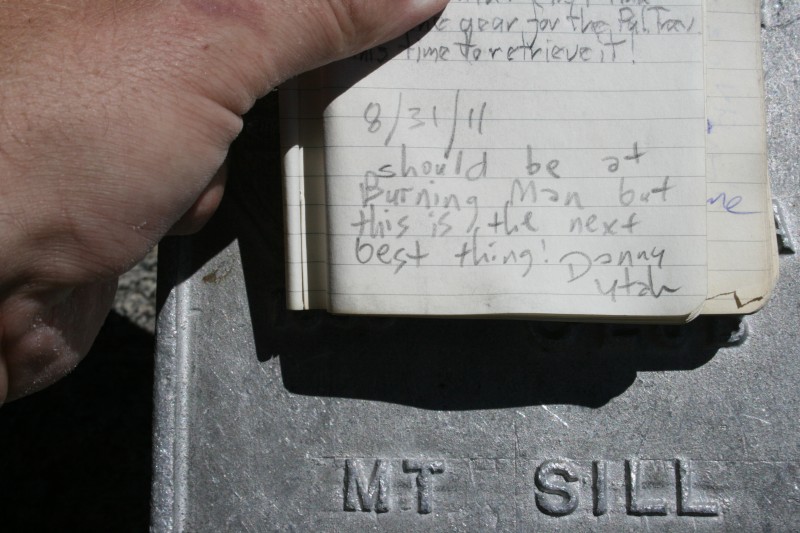 gear for the Pal. Trav
this time to retrieve it!
8/31/11
should be at
Burning Man but
this is the next
best thing! Danny
Utah
ne
MT SILL